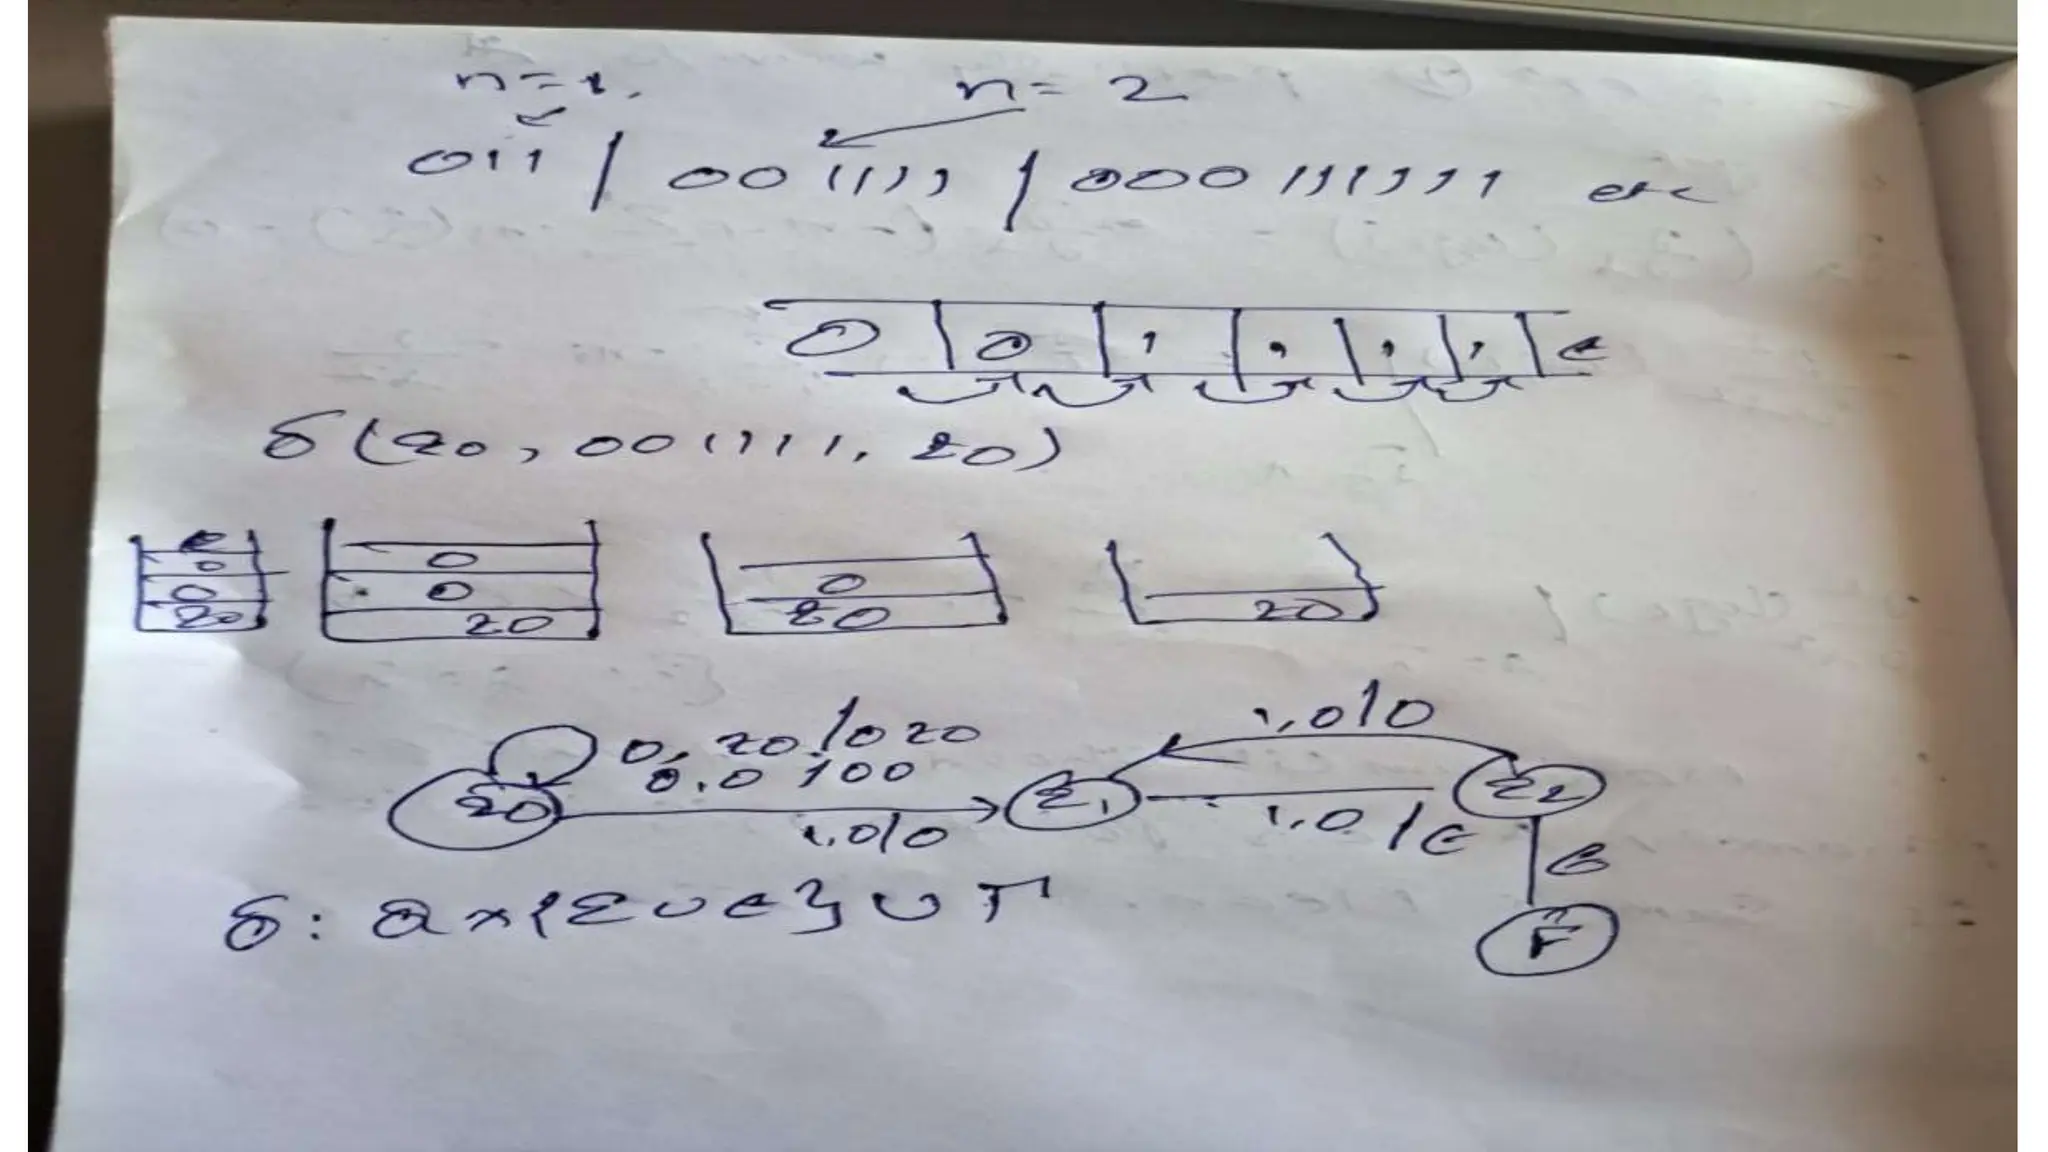 n=1. n=2
011 / 001111 / 000111111 etc
0 | 0 | 1 | 1 | 1 | 1 | ϵ
δ(q0, 001111, z0)
ϵ
0 0
0 0 0
z0 z0 z0 z0
0, z0/0z0
0,0/00
1,0/0
q0 q1 q2
1,0/0 1,0/ϵ
ϵ
δ: Q×{Σ∪ϵ}∪Γ
F